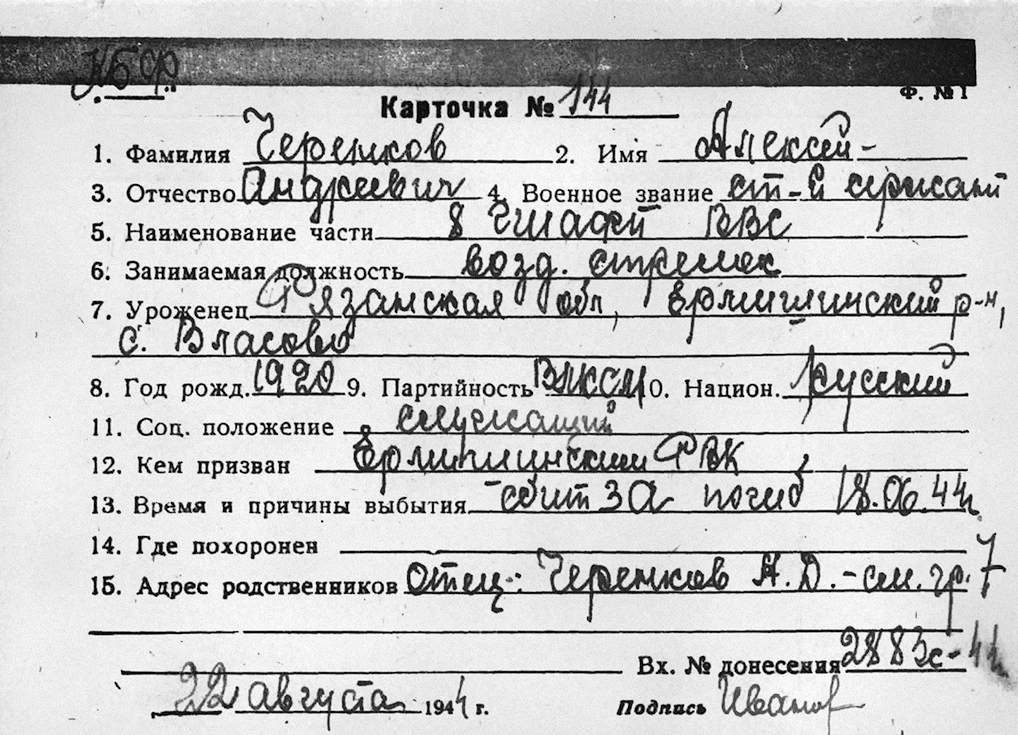 КБФ
Ф. №1
Карточка № 144
1. Фамилия Черенков 2. Имя Алексей
3. Отчество Андреевич 4. Военное звание ст-й сержант
5. Наименование части 8 ГШАП ВВС
6. Занимаемая должность возд. стрелок
7. Уроженец Рязанская обл, Ермишинский р-н,
с. Власово
8. Год рожд. 1920 9. Партийность ВЛКСМ 0. Национ. русский
11. Соц. положение служащий
12. Кем призван Ермишинским РВК
13. Время и причины выбытия сбит ЗА погиб 18.06.44г.
14. Где похоронен
15. Адрес родственников отец: Черенков А. Д. - см. гр. 7
Вх. № донесения 2883с-44г
22 августа 1944 г. Подпись Иванов